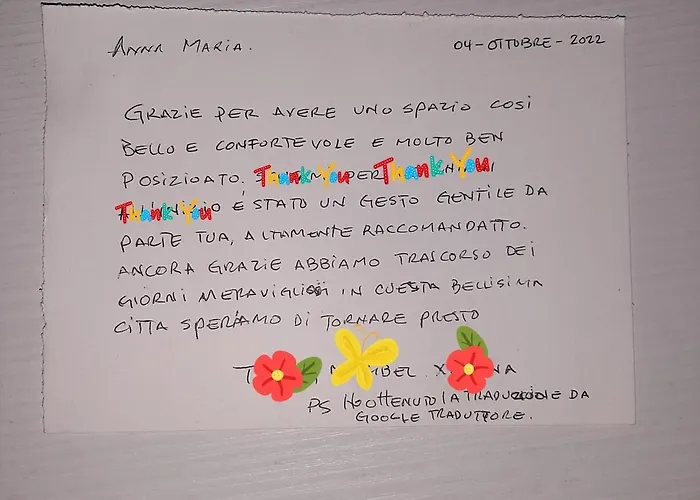 ANNA MARIA. 04-OTTOBRE-2022
GRAZIE PER AVERE UNO SPAZIO COSI
BELLO E CONFORTEVOLE E MOLTO BEN
POSIZIOATO. Thank You PER Thank You
Thank You È STATO UN GESTO GENTILE DA
PARTE TUA, ALTAMENTE RACCOMANDATTO.
ANCORA GRAZIE ABBIAMO TRASCORSO DEI
GIORNI MERAVIGLIOSI IN CUESTA BELLISIMA
CITTA SPERIAMO DI TORNARE PRESTO
PS HO OTTENUTO LA TRADUZIONE DA
GOOGLE TRADUTTORE.